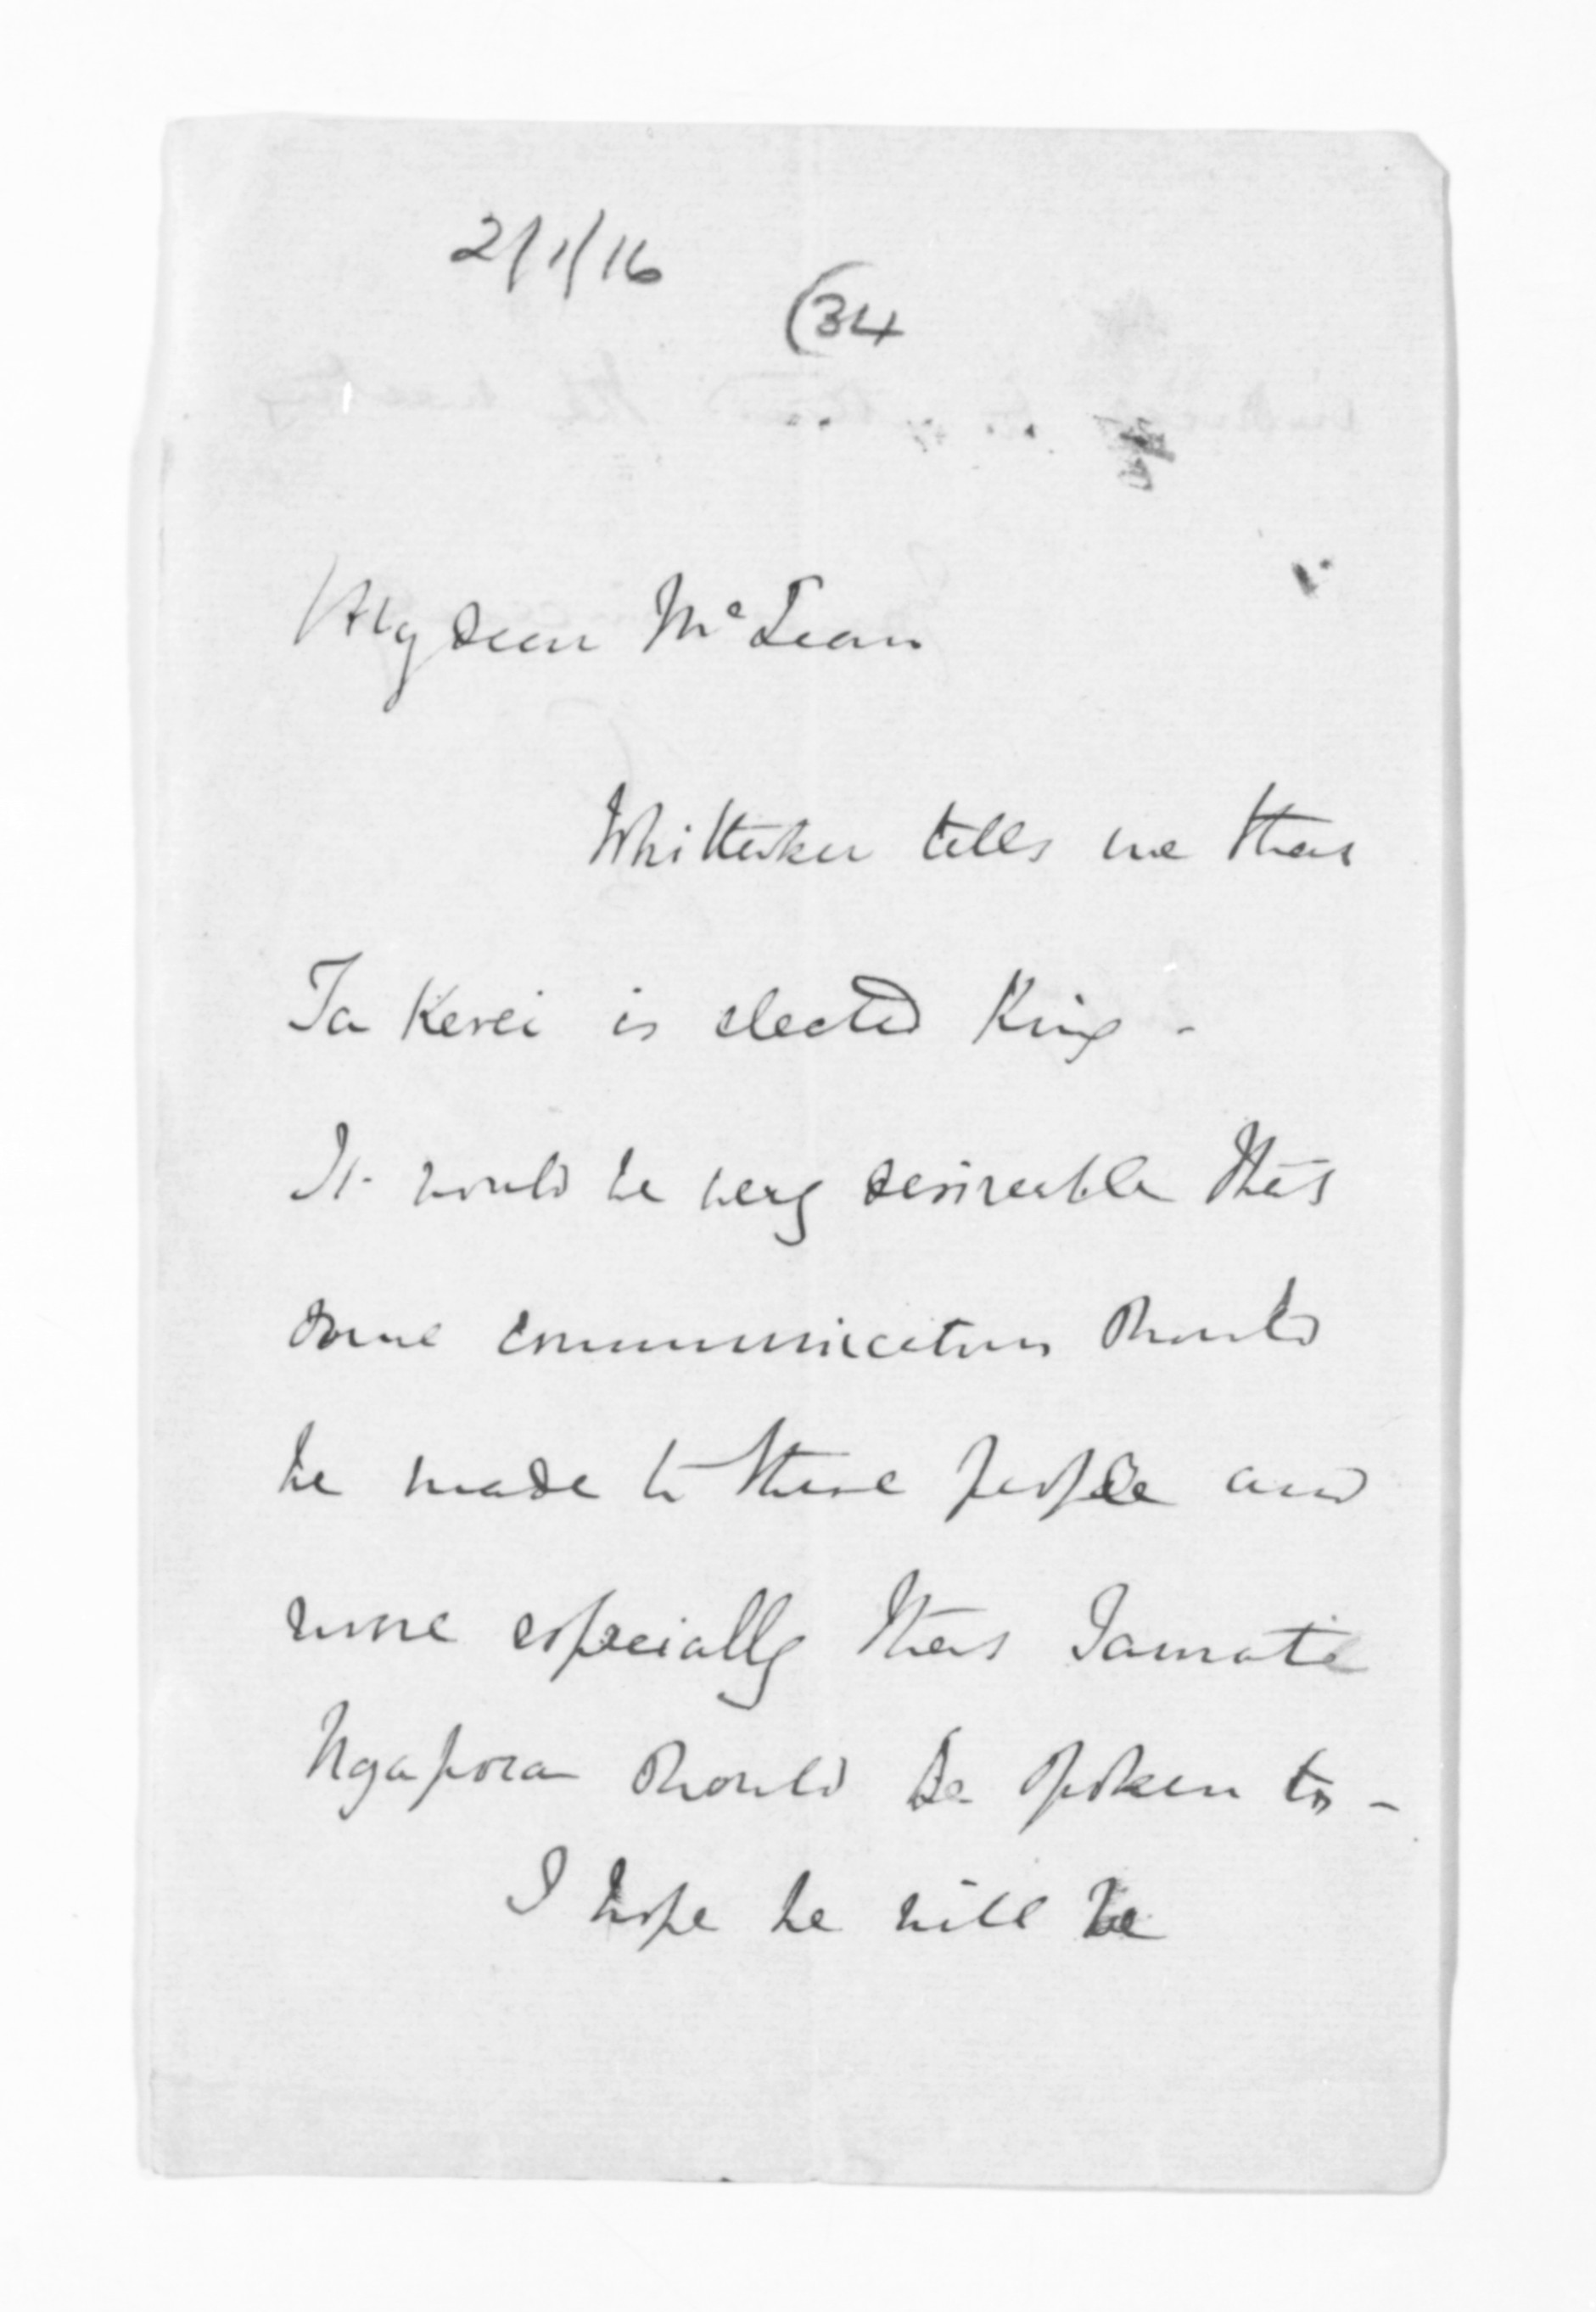 2/1/16
(34
My dear McLean
Whittaker tells me that
Ta Kerei is elected King -
It would be very desireable that
some communication should
be made to these people and
more especially that Tamati
Ngapora should be spoken to -
I hope he will be